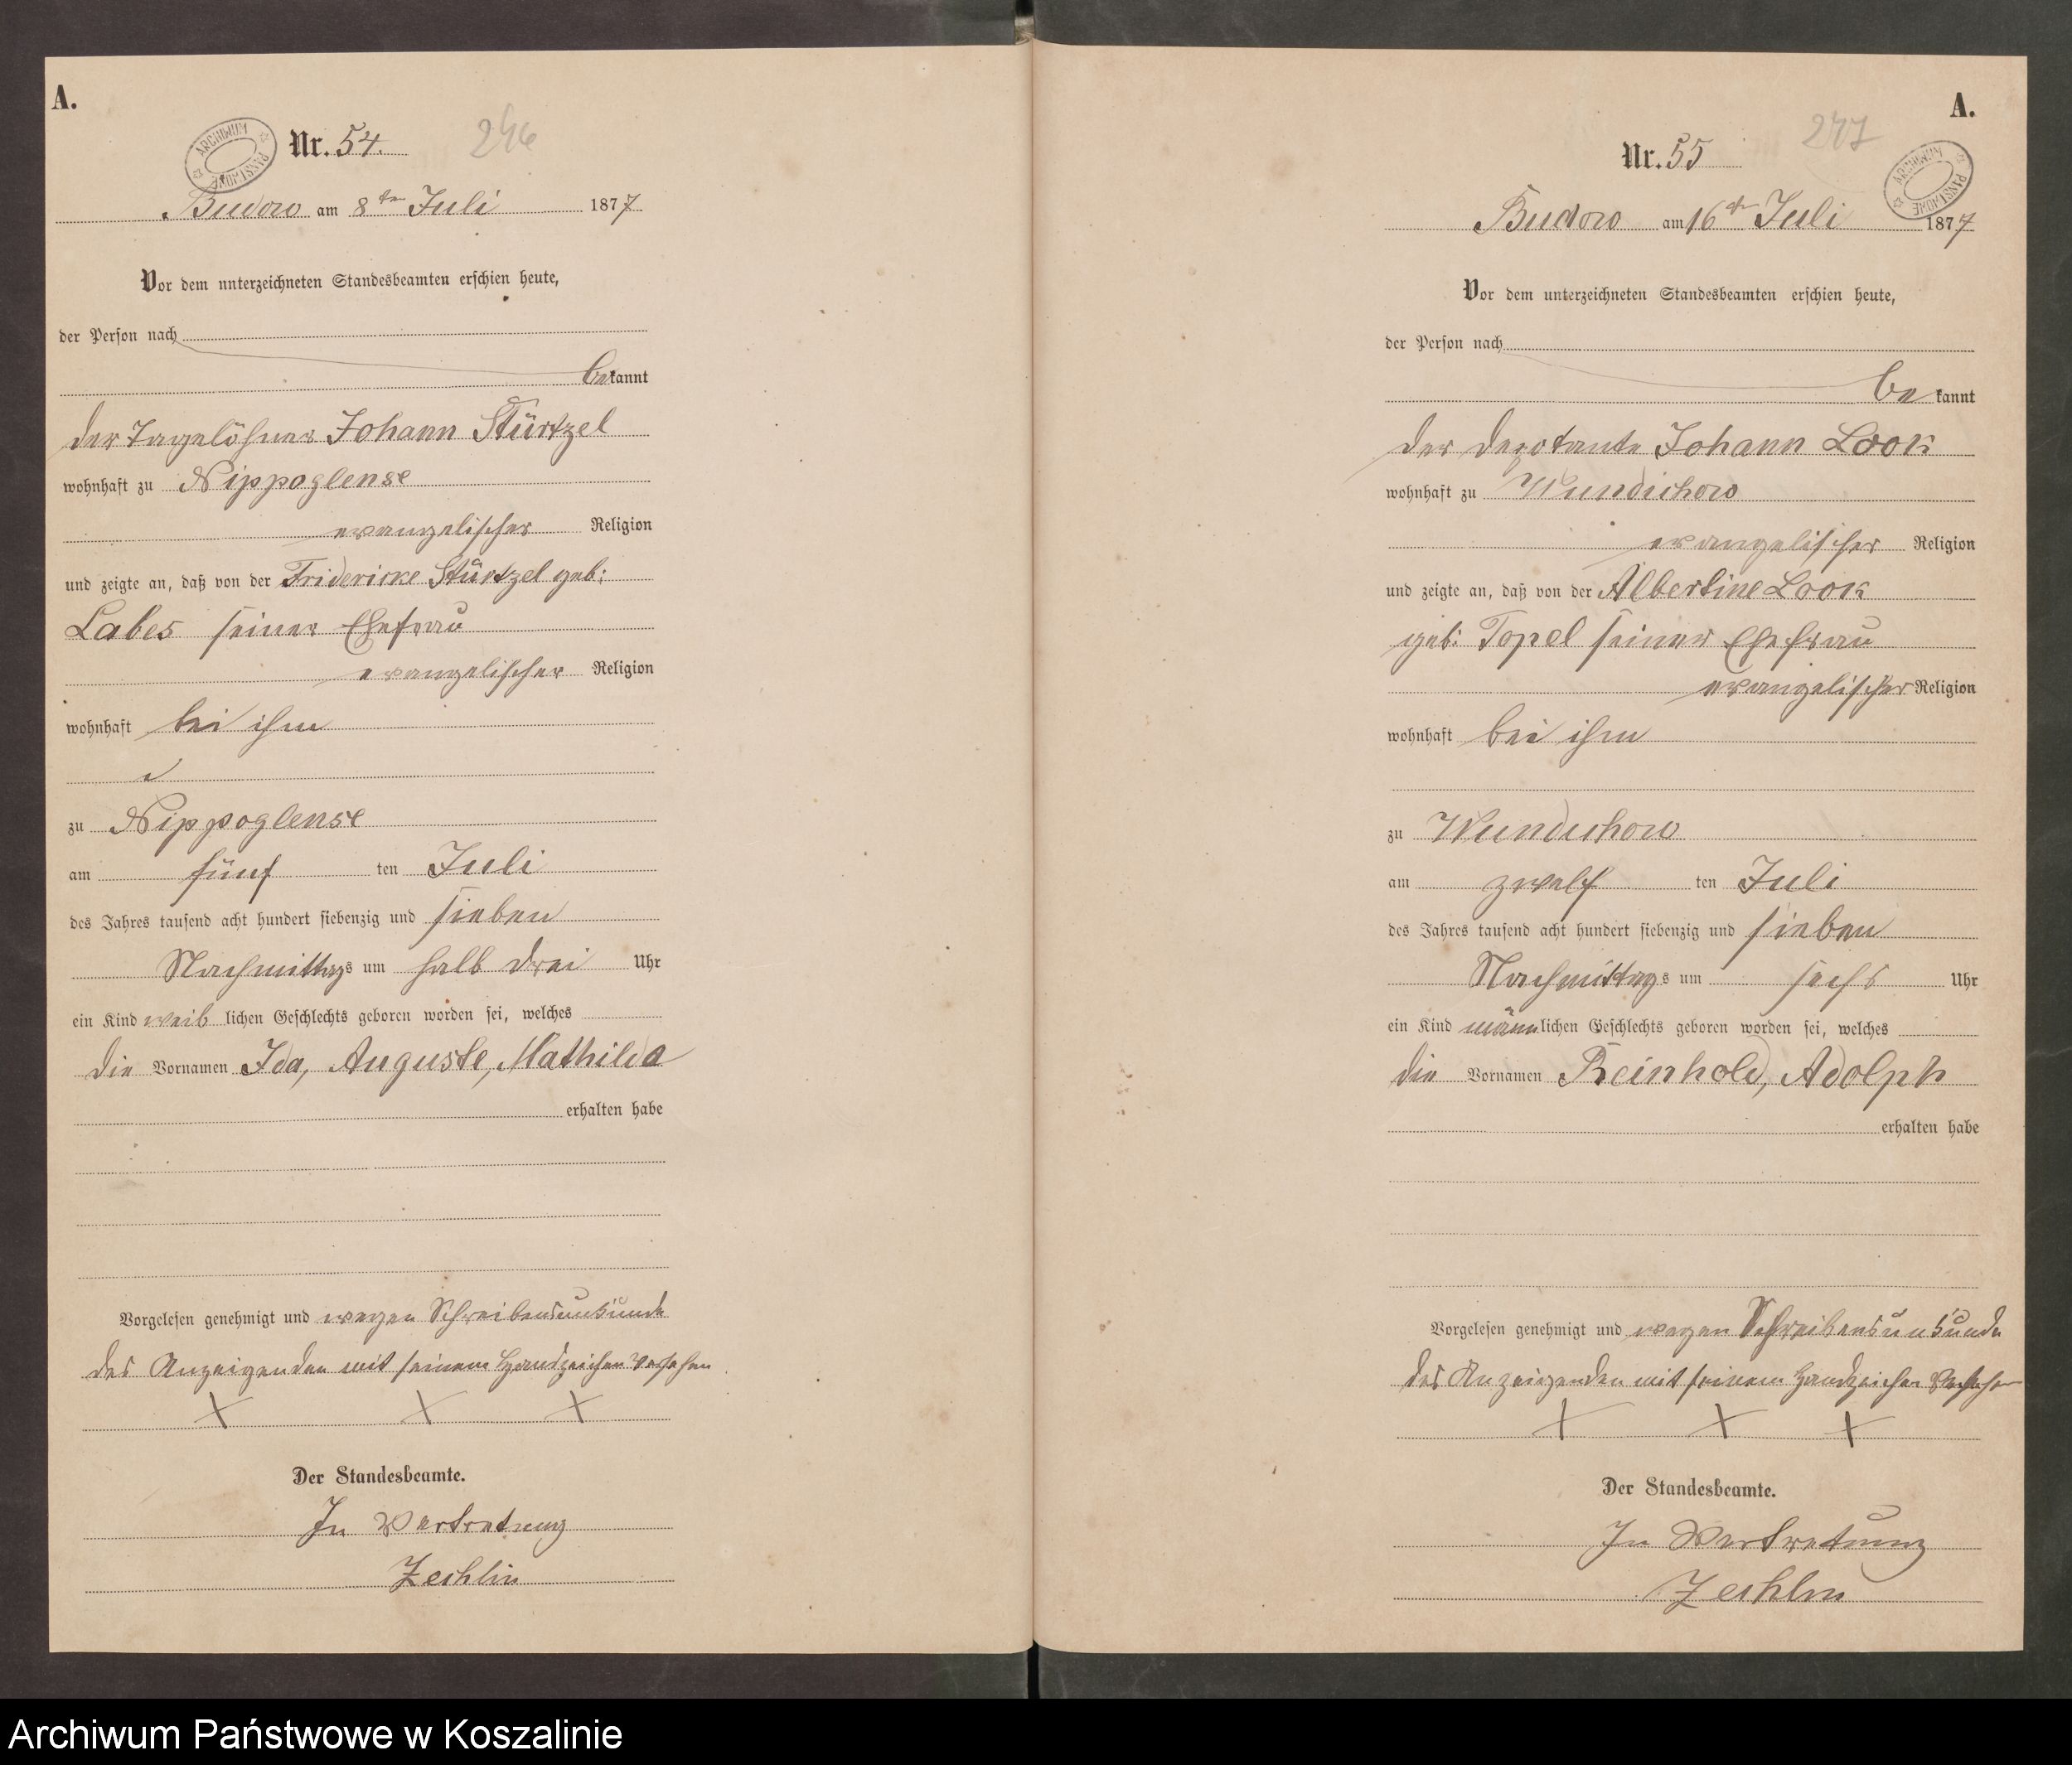 A.
Nr. 54.
246
ARCHIWUM PAŃSTWOWE
Budow am 8ten Juli 1877
Vor dem unterzeichneten Standesbeamten erschien heute,
der Person nach
bekannt
der Tagelöhner Johann Stürtzel
wohnhaft zu Nippoglense
evangelischer Religion
und zeigte an, daß von der Fridericke Stürtzel geb:
Labes seiner Ehefrau
evangelischer Religion
wohnhaft bei ihm
zu Nippoglense
am fünf ten Juli
des Jahres tausend acht hundert siebenzig und sieben
Nachmittags um halb drei Uhr
ein Kind weiblichen Geschlechts geboren worden sei, welches
die Vornamen Ida, Auguste, Mathilda
erhalten habe
Vorgelesen genehmigt und wegen Schreibensunkunde
des Anzeigenden mit seinem Handzeichen versehen
X X X
Der Standesbeamte.
In Vertretung
Zechlin
A.
277
Nr. 55
ARCHIWUM PAŃSTWOWE
Budow am 16ten Juli 1877
Vor dem unterzeichneten Standesbeamten erschien heute,
der Person nach
bekannt
der Johann Look
wohnhaft zu Wundichow
evangelischer Religion
und zeigte an, daß von der Albertine Look
geb: Topel seiner Ehefrau
evangelischer Religion
wohnhaft bei ihm
zu Wundichow
am zwölf ten Juli
des Jahres tausend acht hundert siebenzig und sieben
Nachmittags um sechs Uhr
ein Kind männlichen Geschlechts geboren worden sei, welches
die Vornamen Reinhold, Adolph
erhalten habe
Vorgelesen genehmigt und wegen Schreibensunkunde
des Anzeigenden mit seinem Handzeichen versehen
X X X
Der Standesbeamte.
In Vertretung
Zechlin
Archiwum Państwowe w Koszalinie